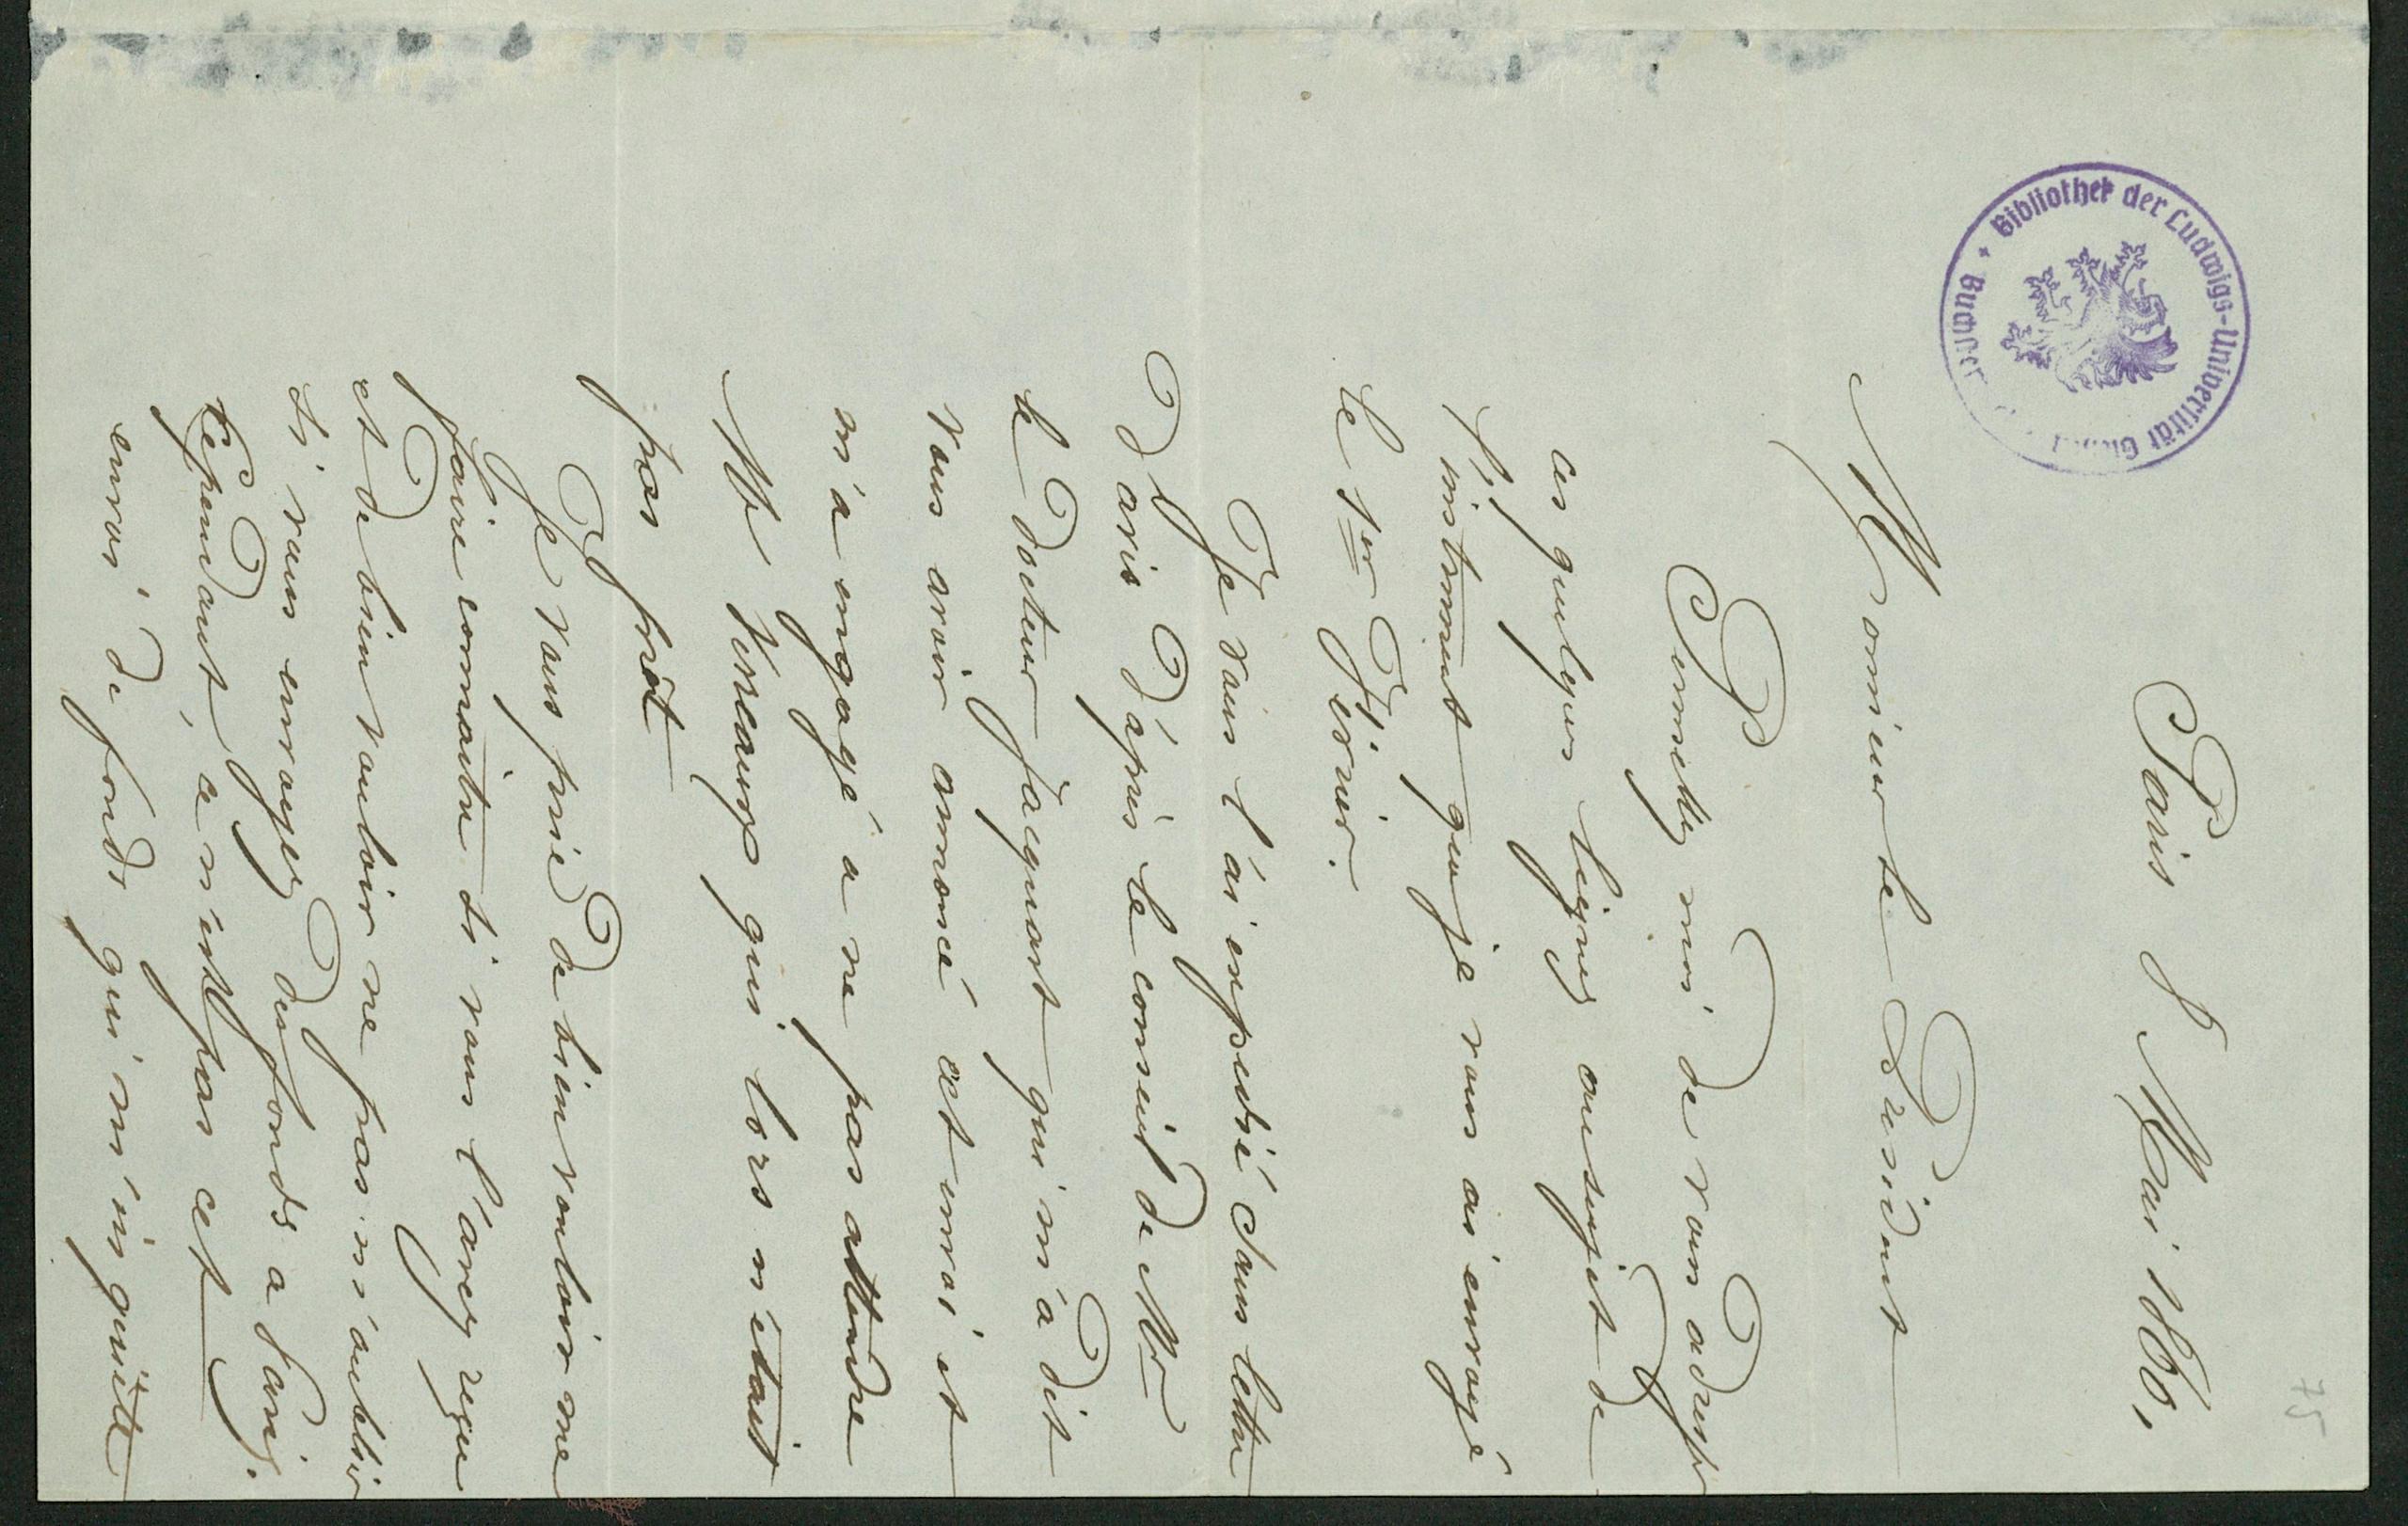 75
Paris 8 Mai 1860,
Bibliothek der Ludwigs-Universität
Buchner
Monsieur le Président
Permettez moi de vous adresser
ces quelques lignes au sujet de
l'instrument que je vous ai envoyé
le 1er Février.
Je vous l'ai expédié sans lettre
d'avis d'après le conseil de Mr
le docteur Jacquart qui m'a dit
vous avoir annoncé cet envoi et
m'a engagé a ne pas attendre
Mr qui lors n'était
pas prêt
Je vous prie de bien vouloir me
faire connaitre si vous l'avez reçu
et de bien vouloir ne pas m'oublier
si vous envoyez des fonds a Paris.
Cependant, ce n'est pas cet
envoi de fonds qui m'inquiète